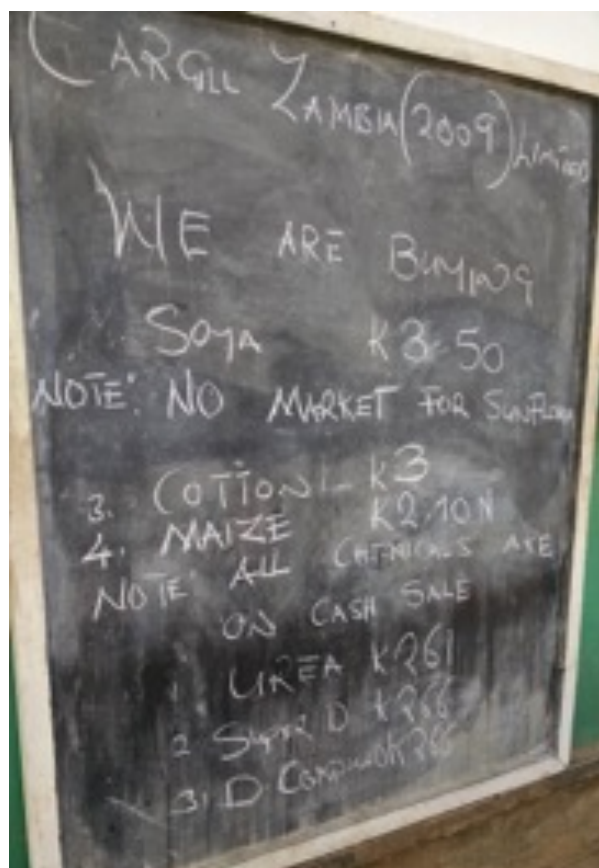 CARGILL ZAMBIA (2009) LIMITED
WE ARE BUYING
SOYA K3-50
NOTE: NO MARKET FOR SUNFLOWER
3. COTTON - K3
4. MAIZE K2.10N
NOTE: ALL CHEMICALS ARE
ON CASH SALE
1 UREA K261
2 SUPER D K266
3. D COMPOUND